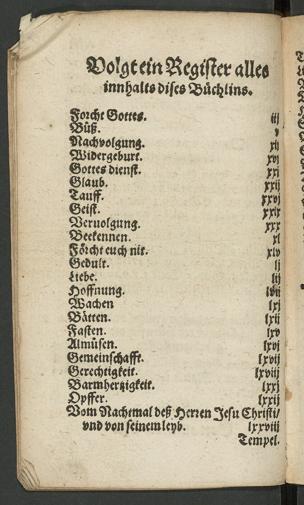 Volgt ein Register alles
innhalts dises Büchlins.
Forcht Gottes. iij
Büß. v
Nachvolgung. xij
Widergeburt. xvj
Gottes dienst. xxj
Glaub. xxij
Tauff. xxvj
Geist. xxix
Vervolgung. xxx
Beekennen. xl
Förcht euch nit. xlv
Gedult. lj
Liebe. lij
Hoffnung. lvij
Wachen lxj
Bätten. lxij
Fasten. lxv
Almůsen. lxvj
Gemeinschafft. lxvij
Gerechtigkeit. lxviij
Barmhertzigkeit. lxxj
Opffer. lxxij
Vom Nachtmal deß Herren Jesu Christi/
vnd von seinem leyb. lxxviij
Tempel.